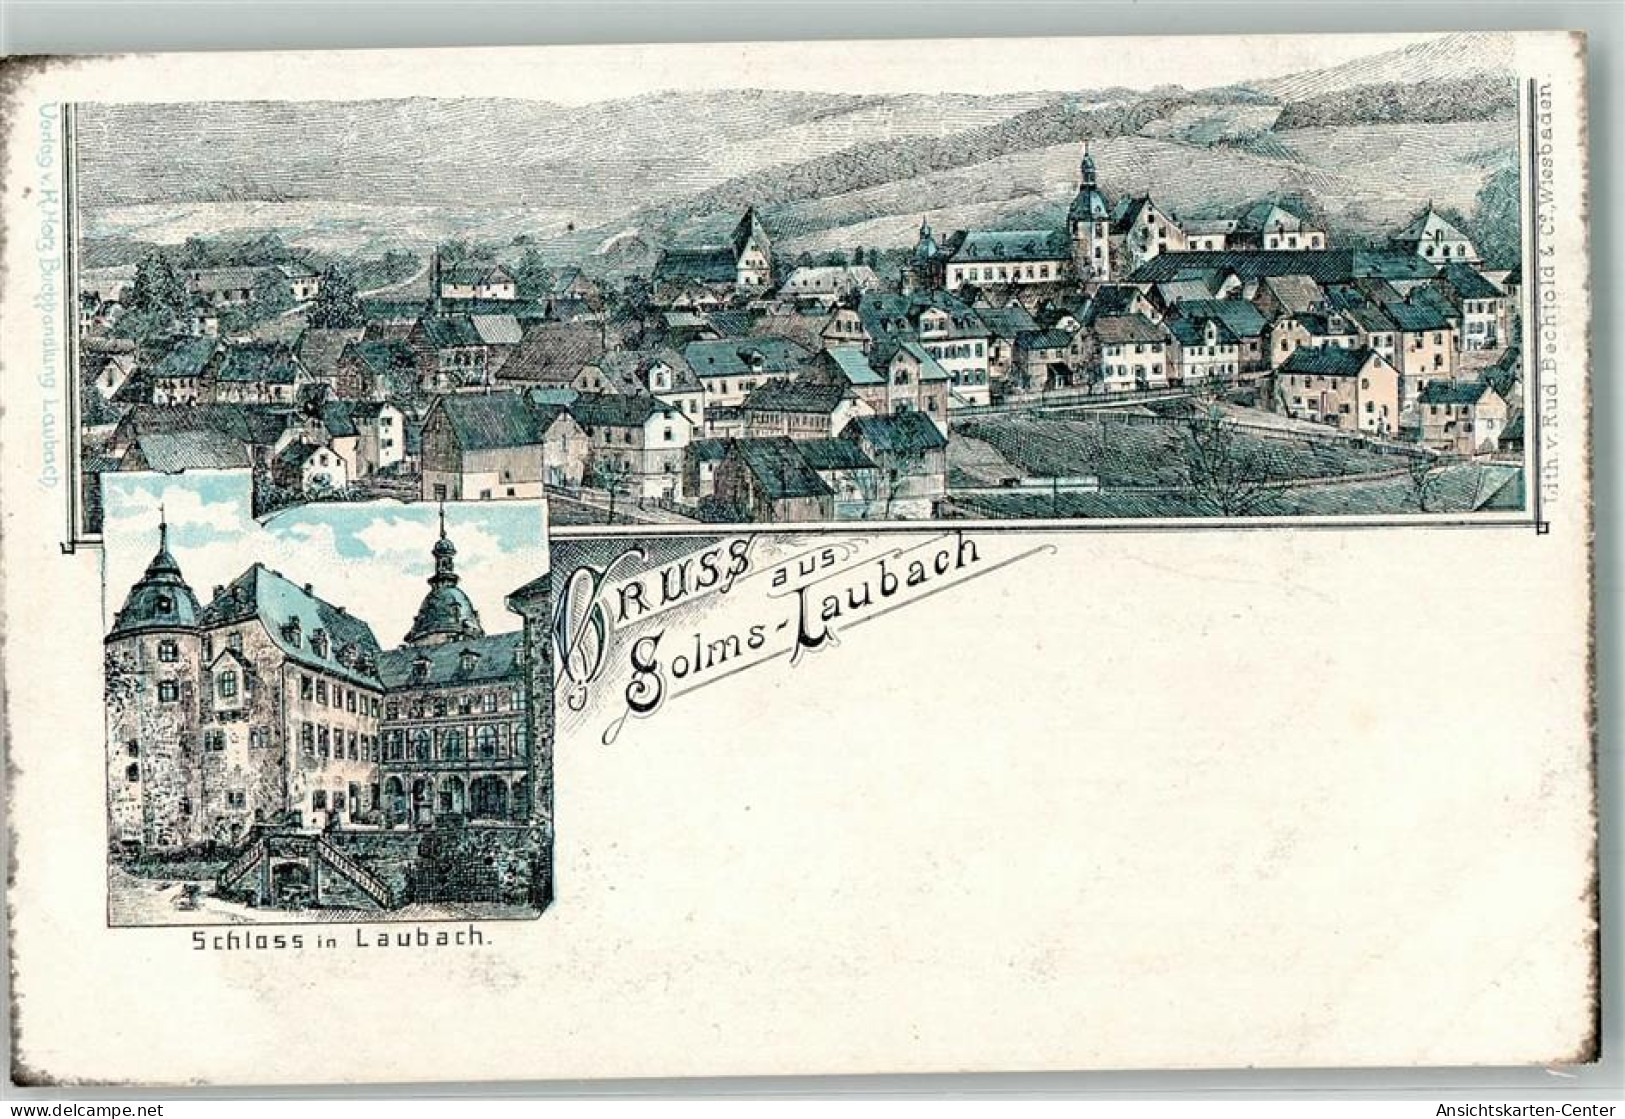 Verlag v. H. Herz, Buchhandlung Laubach.
Lith. v. Rud. Bechtold & Cº., Wiesbaden.
GRUSS
aus
Solms-Laubach
Schloss in Laubach.
delcampe.net
Ansichtskarten-Center